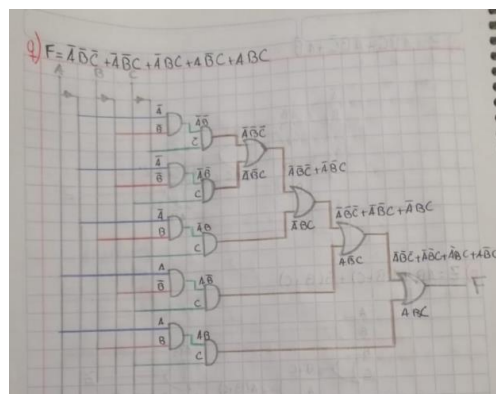 9) F= A̅B̅C̅ + A̅B̅C + A̅BC + AB̅C + ABC
A B C
A̅
B̅
A̅B̅
C̅
A̅B̅C̅
A̅
B̅
A̅B̅
C
A̅B̅C
A̅B̅C̅ + A̅B̅C
A̅
B
A̅B
C
A̅BC
A̅B̅C̅ + A̅B̅C + A̅BC
A
B̅
AB̅
C
AB̅C
A̅B̅C̅ + A̅B̅C + A̅BC + AB̅C
A
B
AB
C
ABC
F